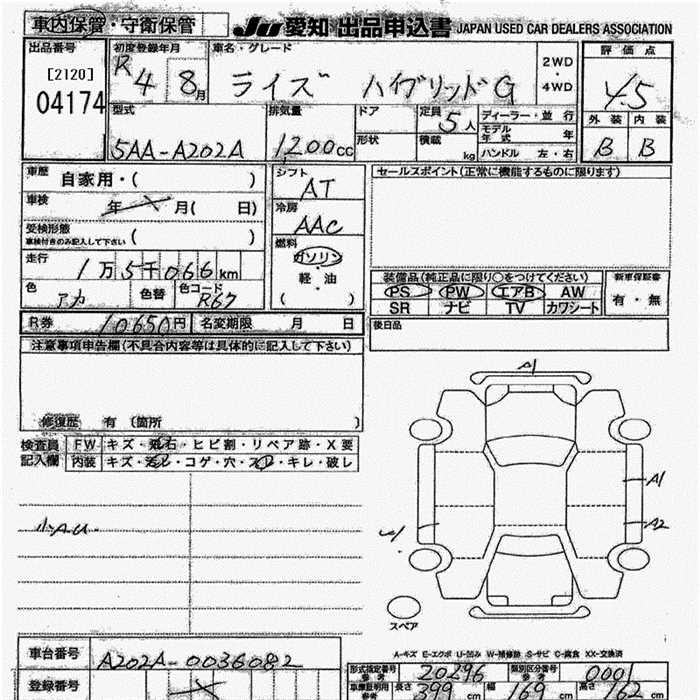 車内保管・守衛保管 JU 愛知 出品申込書 JAPAN USED CAR DEALERS ASSOCIATION
出品番号 初度登録年月 車名・グレード 2WD・4WD 評価点
[2120] R4 8月 ライズ ハイブリッドG 4.5
04174
型式 排気量 ドア 定員 5人 ディーラー・並行 外装 内装
5AA-A202A 1,200cc 形状 積載 kg モデル年式 年 B B
ハンドル 左・右
車歴 自家用・( ) シフト AT セールスポイント(正常に機能するものに限ります)
車検 年 月( 日) 冷房 AAC
受検形態 ( )
車検付きのみ記入して下さい
燃料 ガソリン・軽・油 ( )
走行 1万5千066km
色 アカ 色替 色コード R67
装備品(純正品に限り○をつけてください) 新車保証書
PS PW エアB AW 有・無
SR ナビ TV カワシート
R券 10650円 名変期限 月 日 後日品
注意事項申告欄(不具合内容等は具体的に記入して下さい)
修復歴 有 (箇所 )
検査員記入欄 FW キズ・飛石・ヒビ割・リペア跡・X要
内装 キズ・汚レ・コゲ・穴・スレ・キレ・破レ
小A.U.
A1
A1
A2
スペア
A-キズ E-エクボ U-凹み W-補修跡 S-サビ C-腐食 XX-交換済
車台番号 A202A-0036082
登録番号
形式指定番号 参考 20296 類別区分番号 参考 0001
車庫証明用 参考 長さ 399cm 幅 169cm 高さ 162cm